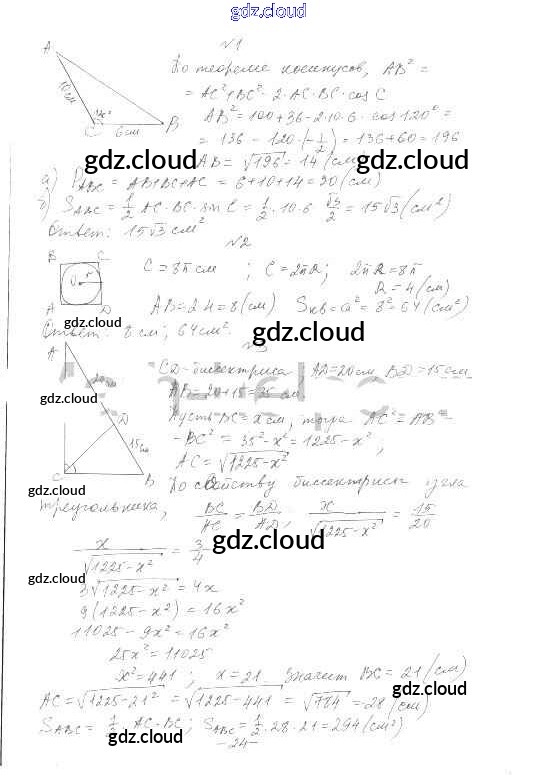 gdz.cloud
№1
A
10 см
C 6 см B
По теореме косинусов, AB² =
= AC² + BC² - 2·AC·BC·cos C
AB² = 100+36-2·10·6·cos120° =
= 136 - 120·(-1/2) = 136+60 = 196
gdz.cloud gdz.cloud
AB = √196 = 14 (см)
а) P_ABC = AB+BC+AC = 6+10+14 = 30 (см)
б) S_ABC = 1/2 AC·BC·sin C = 1/2·10·6 √3/2 = 15√3 (см²)
Ответ: 15√3 см²
№2
B C
O r
A D
C = 8π см ; C = 2πR ; 2πR = 8π
R = 4 (см)
AB = 2·4 = 8 (см) Sкв = a² = 8² = 64 (см²)
gdz.cloud gdz.cloud
Ответ: 8 см; 64 см².
№3
A
20 см
D
15 см
C B
CD - биссектриса, AD = 20 см BD = 15 см
AB = 20+15 = 35 см
gdz.cloud
Пусть BC = x см, тогда AC² = AB² -
- BC² = 35² - x² = 1225 - x² ;
AC = √1225 - x²
gdz.cloud
По свойству биссектрисы угла
треугольника, BC/AC = BD/AD ; x/√1225 - x² = 15/20
gdz.cloud
x/√1225 - x² = 3/4
gdz.cloud
3√1225 - x² = 4x
9(1225 - x²) = 16x²
11025 - 9x² = 16x²
25x² = 11025
x² = 441 ; x = 21. Значит BC = 21 (см)
gdz.cloud
AC = √1225 - 21² = √1225 - 441 = √784 = 28 (см)
S_ABC = 1/2·AC·BC ; S_ABC = 1/2·28·21 = 294 (см²)
gdz.cloud
-24-